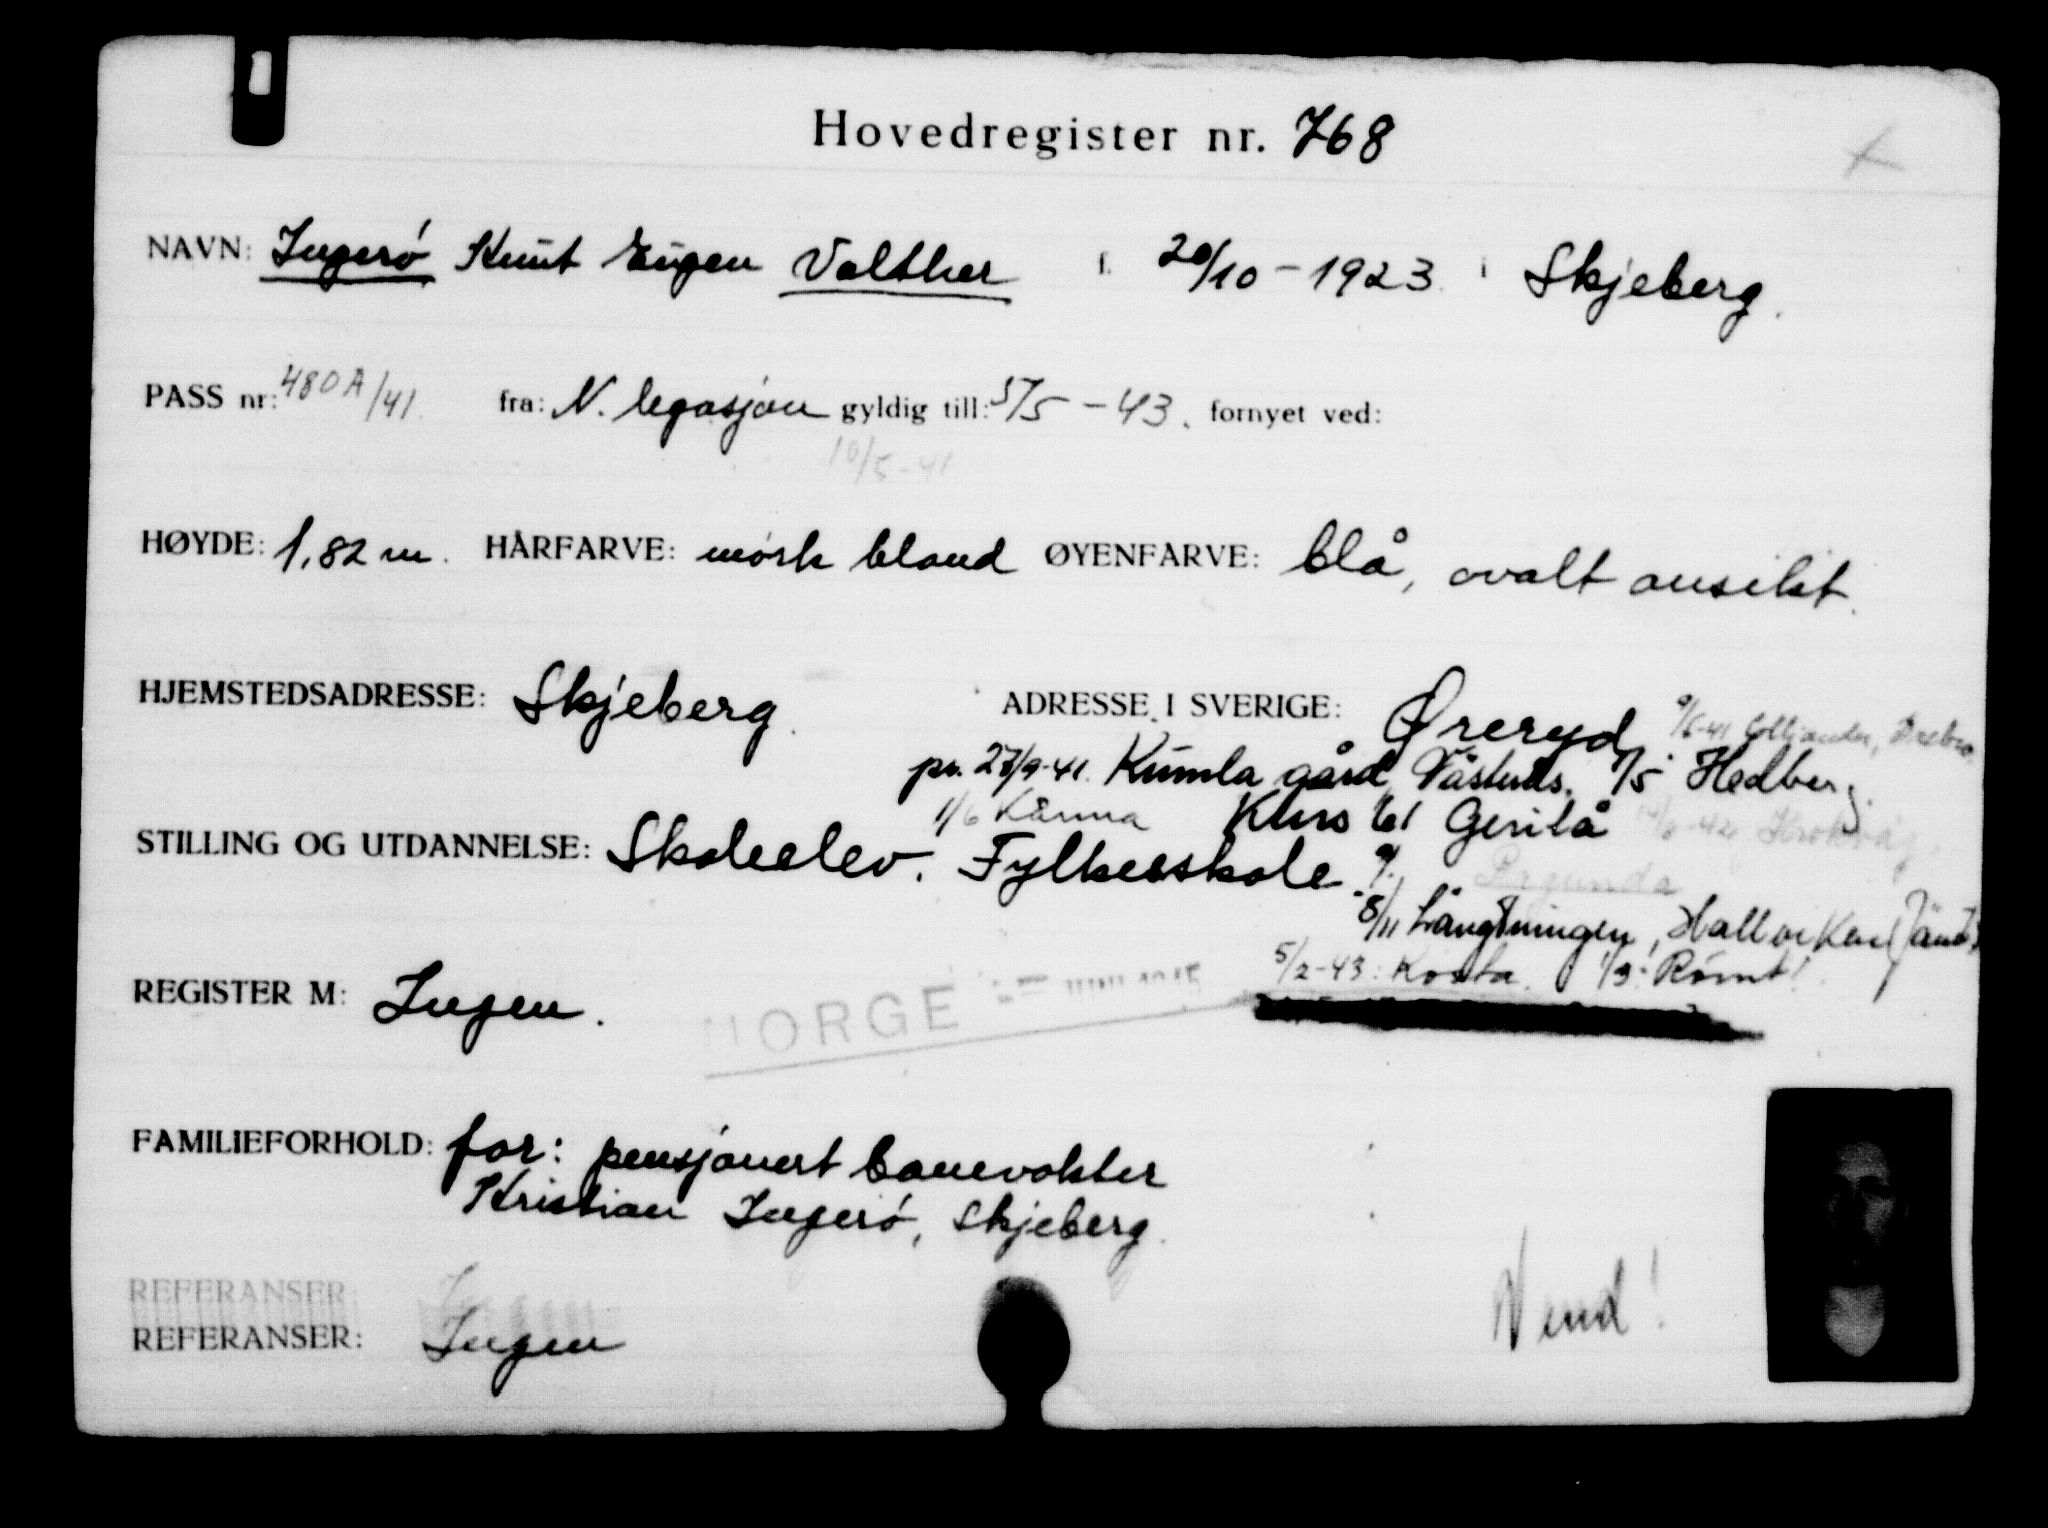 Hovedregister nr. 768
NAVN: Ingerø Knut Eugen Valther f. 20/10-1923 i Skjeberg.
PASS nr: 480A/41. fra: N. legasjon gyldig till: 5/5-43. fornyet ved:
10/5-41
HØYDE: 1,82 m. HÅRFARVE: mørk blond ØYENFARVE: blå, ovalt ansikt.
HJEMSTEDSADRESSE: Skjeberg. ADRESSE I SVERIGE: Øreryd
pr. 27/9-41. Kumla gård 1/5 Hedberg.
1/6 Kårma Kurs
STILLING OG UTDANNELSE: Skoleelev. Fylkesskole.
Ragunda
8/11 Hallviken
5/2-43: Kosta. 1/3: Rømt!
REGISTER M: Ingen.
NORGE JUNI 1945
FAMILIEFORHOLD: far: pensjonert banevokter
Kristian Ingerø, Skjeberg.
REFERANSER: Ingen
REFERANSER: Ingen
Vend!